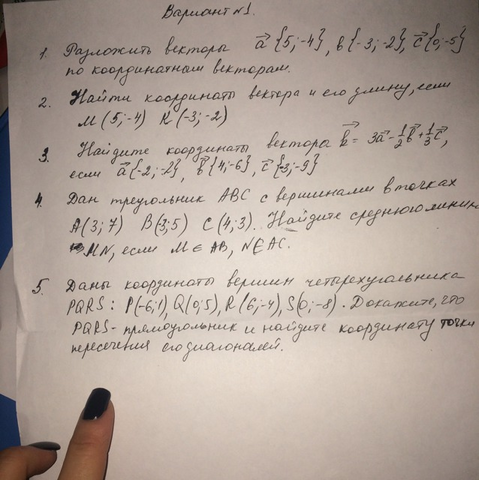 Вариант №1.
1. Разложить векторы a⃗{5;-4}, b{-3;-2}, c⃗{0;-5}
по координатным векторам.
2. Найти координаты вектора и его длину, если
M(5;-4) K(-3;-2)
3. Найдите координаты вектора k⃗= 3a⃗-1/2b⃗+1/3c⃗,
если a⃗{-2;-2}, b⃗{4;-6}, c⃗{-3;-9}
4. Дан треугольник ABC с вершинами в точках
A(3;7) B(3;5) C(4;3). Найдите среднюю линию
MN, если M∈AB, N∈AC.
5. Даны координаты вершин четырехугольника
PQRS: P(-6;1), Q(0;5), R(6;-4), S(0;-8). Докажите, что
PQRS-прямоугольник и найдите координату точки
пересечения его диагоналей.